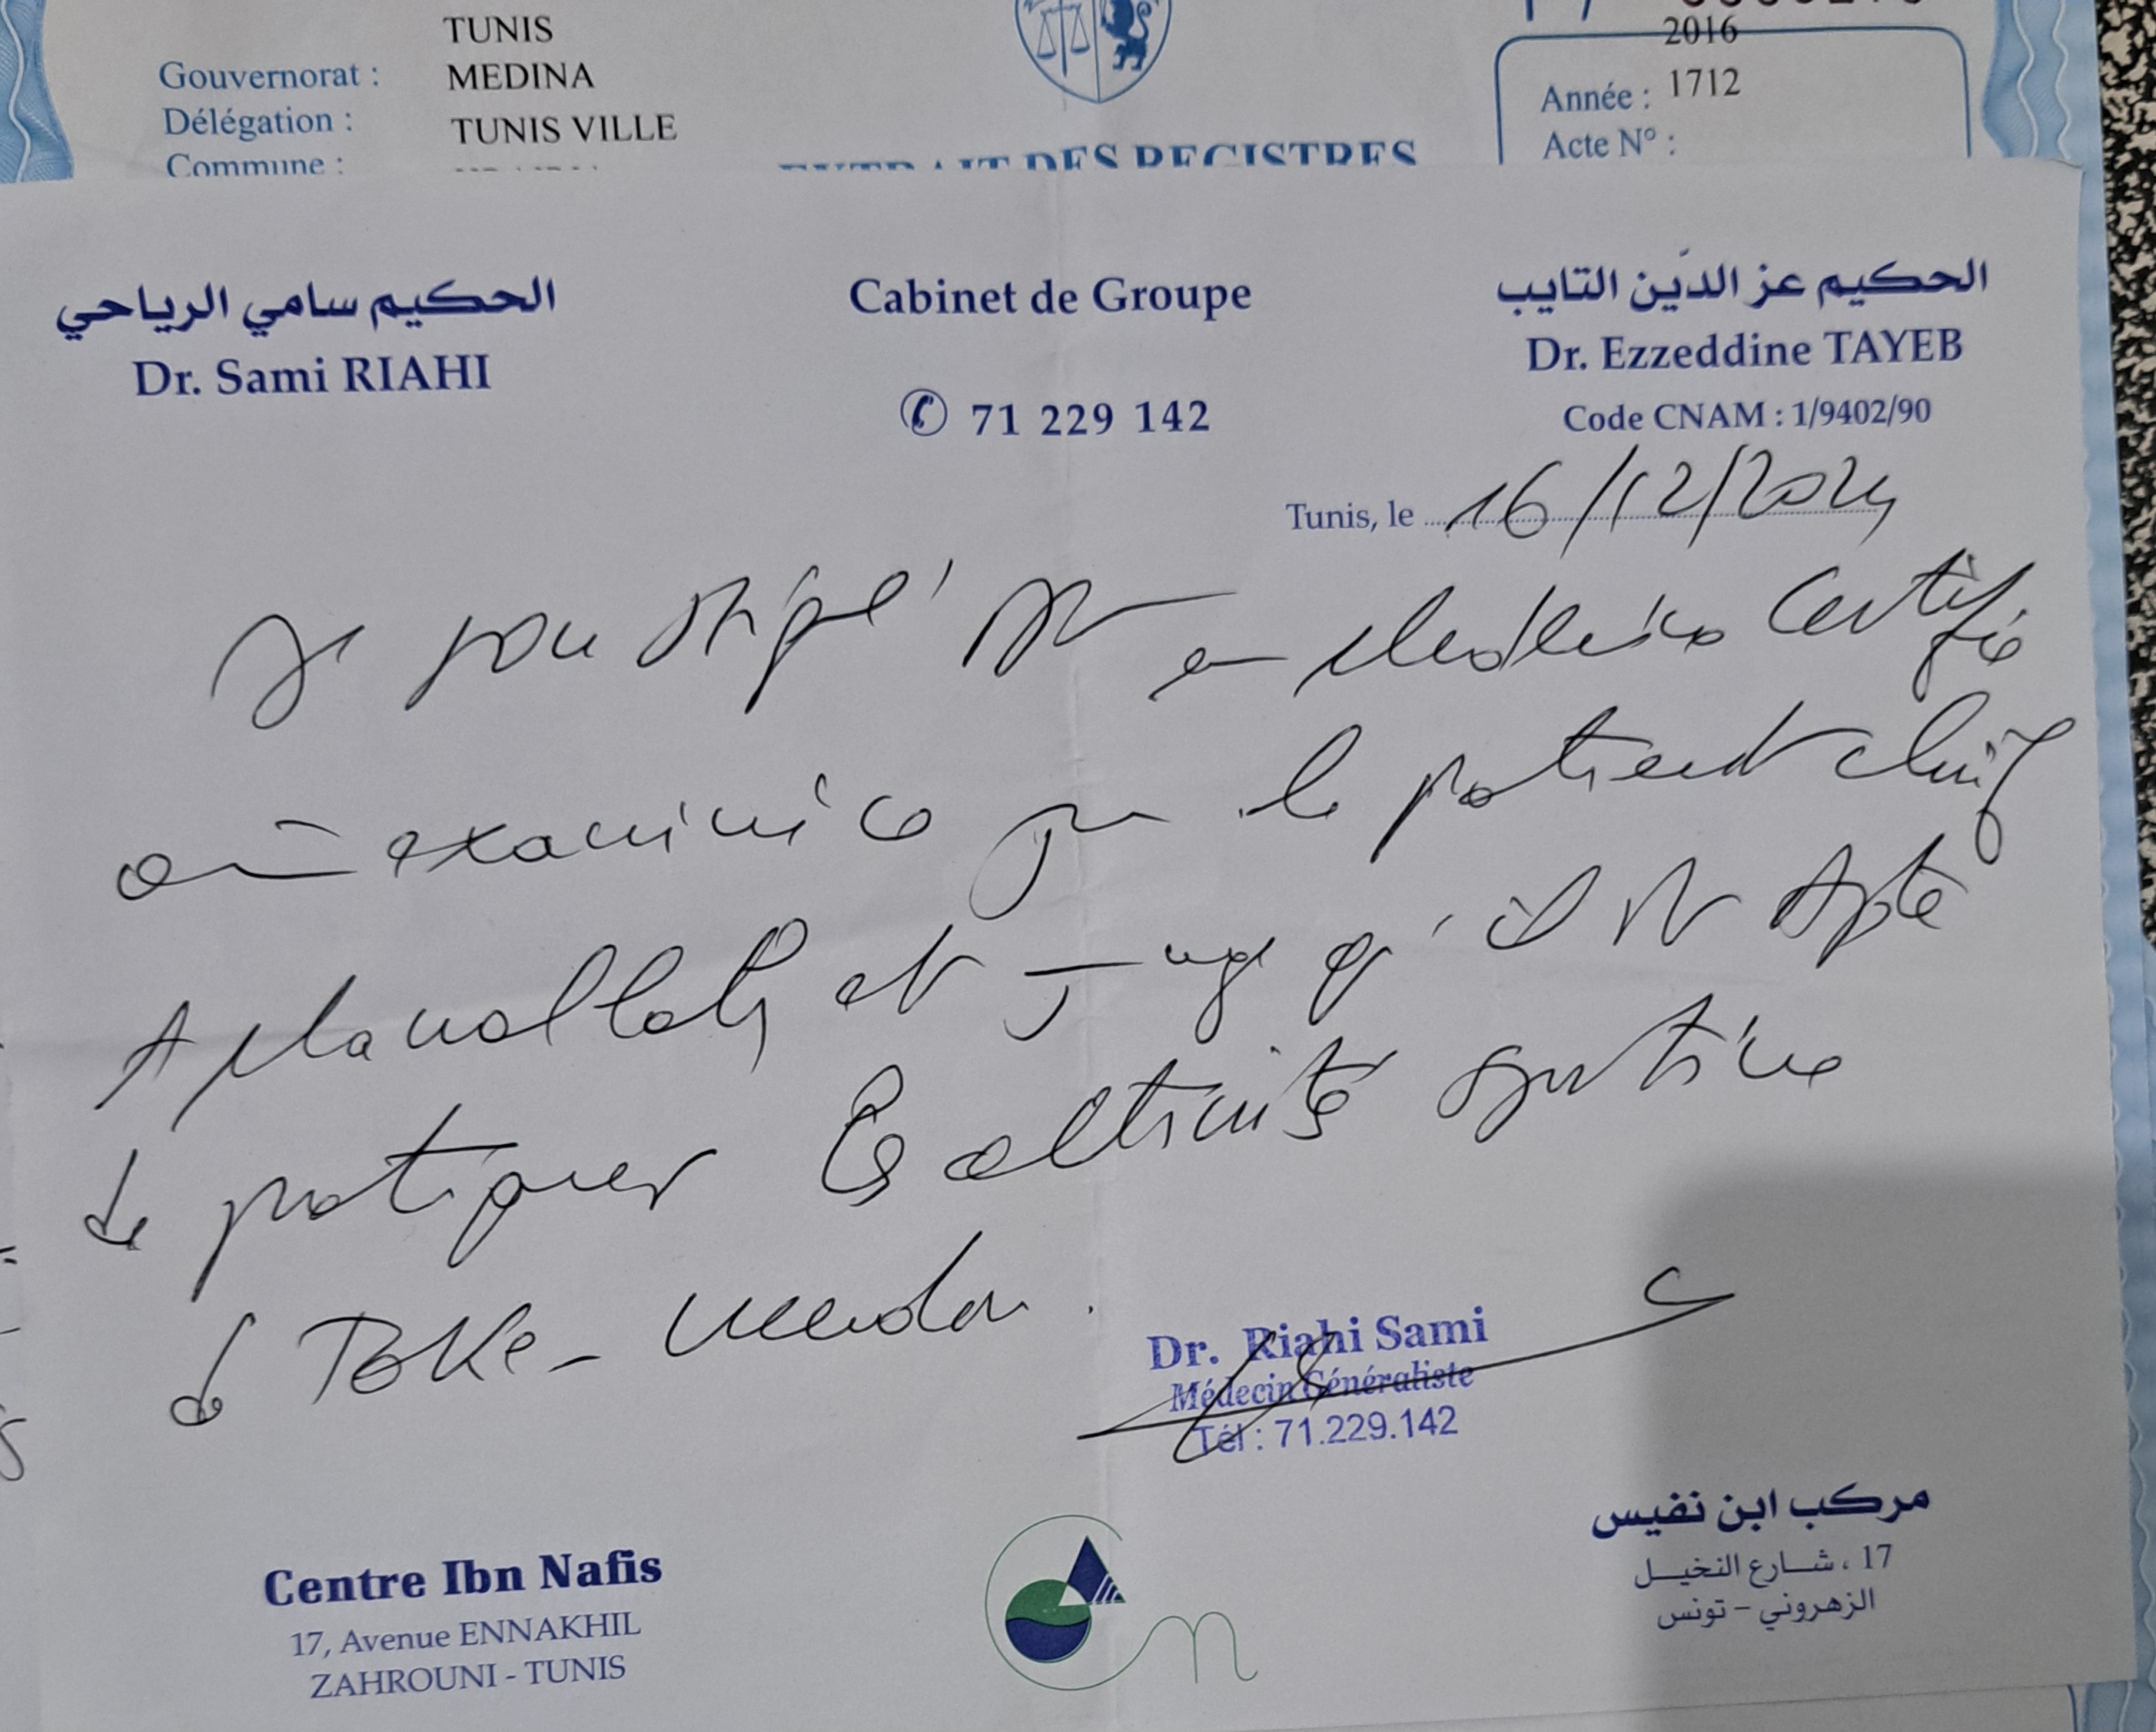 TUNIS
Gouvernorat : MEDINA
Délégation : TUNIS VILLE
Commune :
2016
Année : 1712
Acte N° :
EXTRAIT DES REGISTRES
الحكيم سامي الرياحي
Dr. Sami RIAHI
Cabinet de Groupe
71 229 142
الحكيم عز الدين التايب
Dr. Ezzeddine TAYEB
Code CNAM : 1/9402/90
Tunis, le 16/12/2024
Je sousigné Dr en Médecine Certifie
avoir examiné ce jour le patient
et juge qu'il est Apte
de pratiquer les activités sportives
de Teke-wendo.
Dr. Riahi Sami
Médecin Généraliste
Tél : 71.229.142
Centre Ibn Nafis
17, Avenue ENNAKHIL
ZAHROUNI - TUNIS
مركب ابن نفيس
17 ، شارع النخيل
الزهروني - تونس